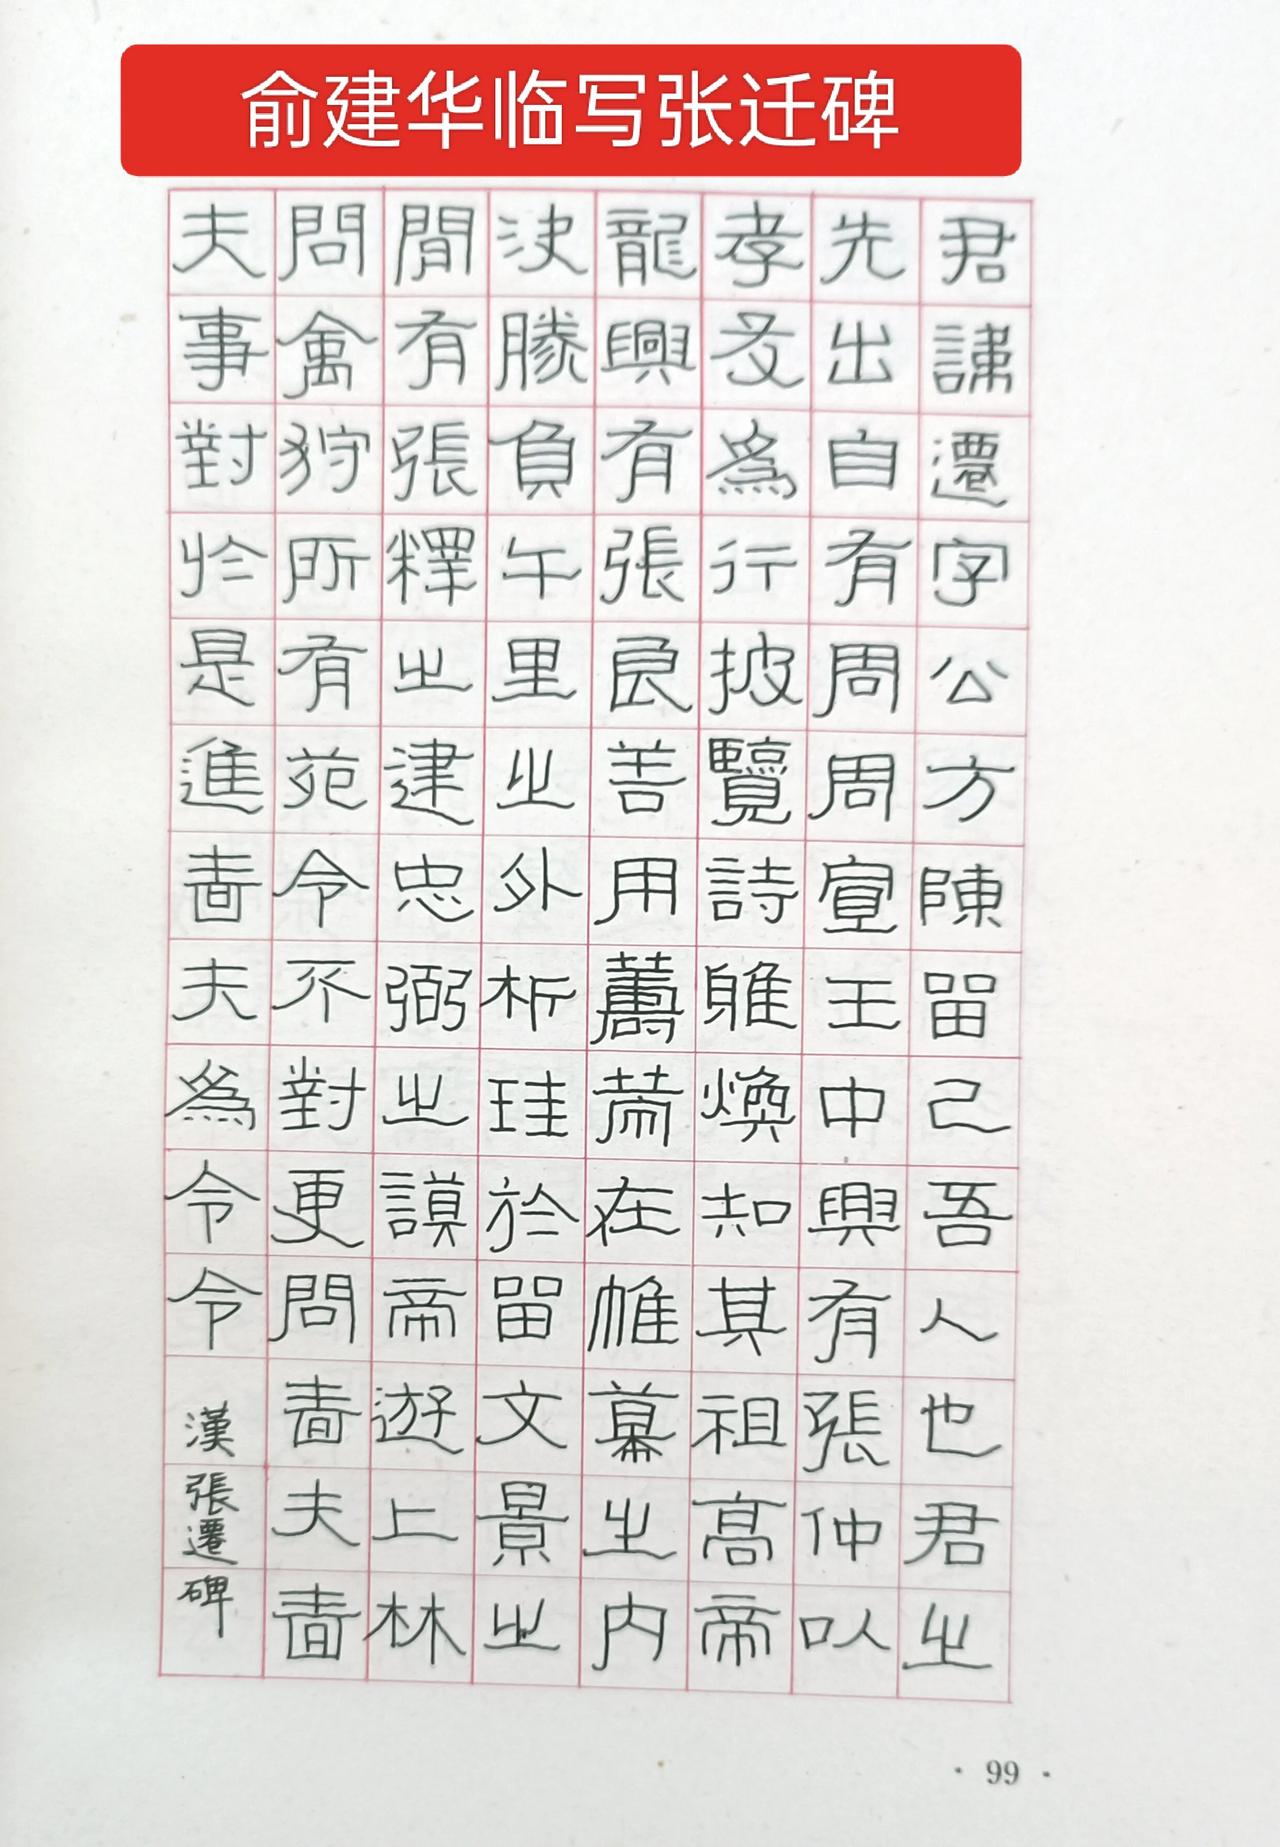 俞建华临写张迁碑
君諱遷字公方陳留己吾人也君之
先出自有周周宣王中興有張仲以
孝友為行披覽詩雅煥知其祖高帝
龍興有張良善用籌策在帷幕之内
決勝負千里之外析珪於留文景之
間有張釋之建忠弼之謨帝遊上林
問禽狩所有苑令不對更問嗇夫嗇
夫事對於是進嗇夫為令令
漢張遷碑
· 99 ·